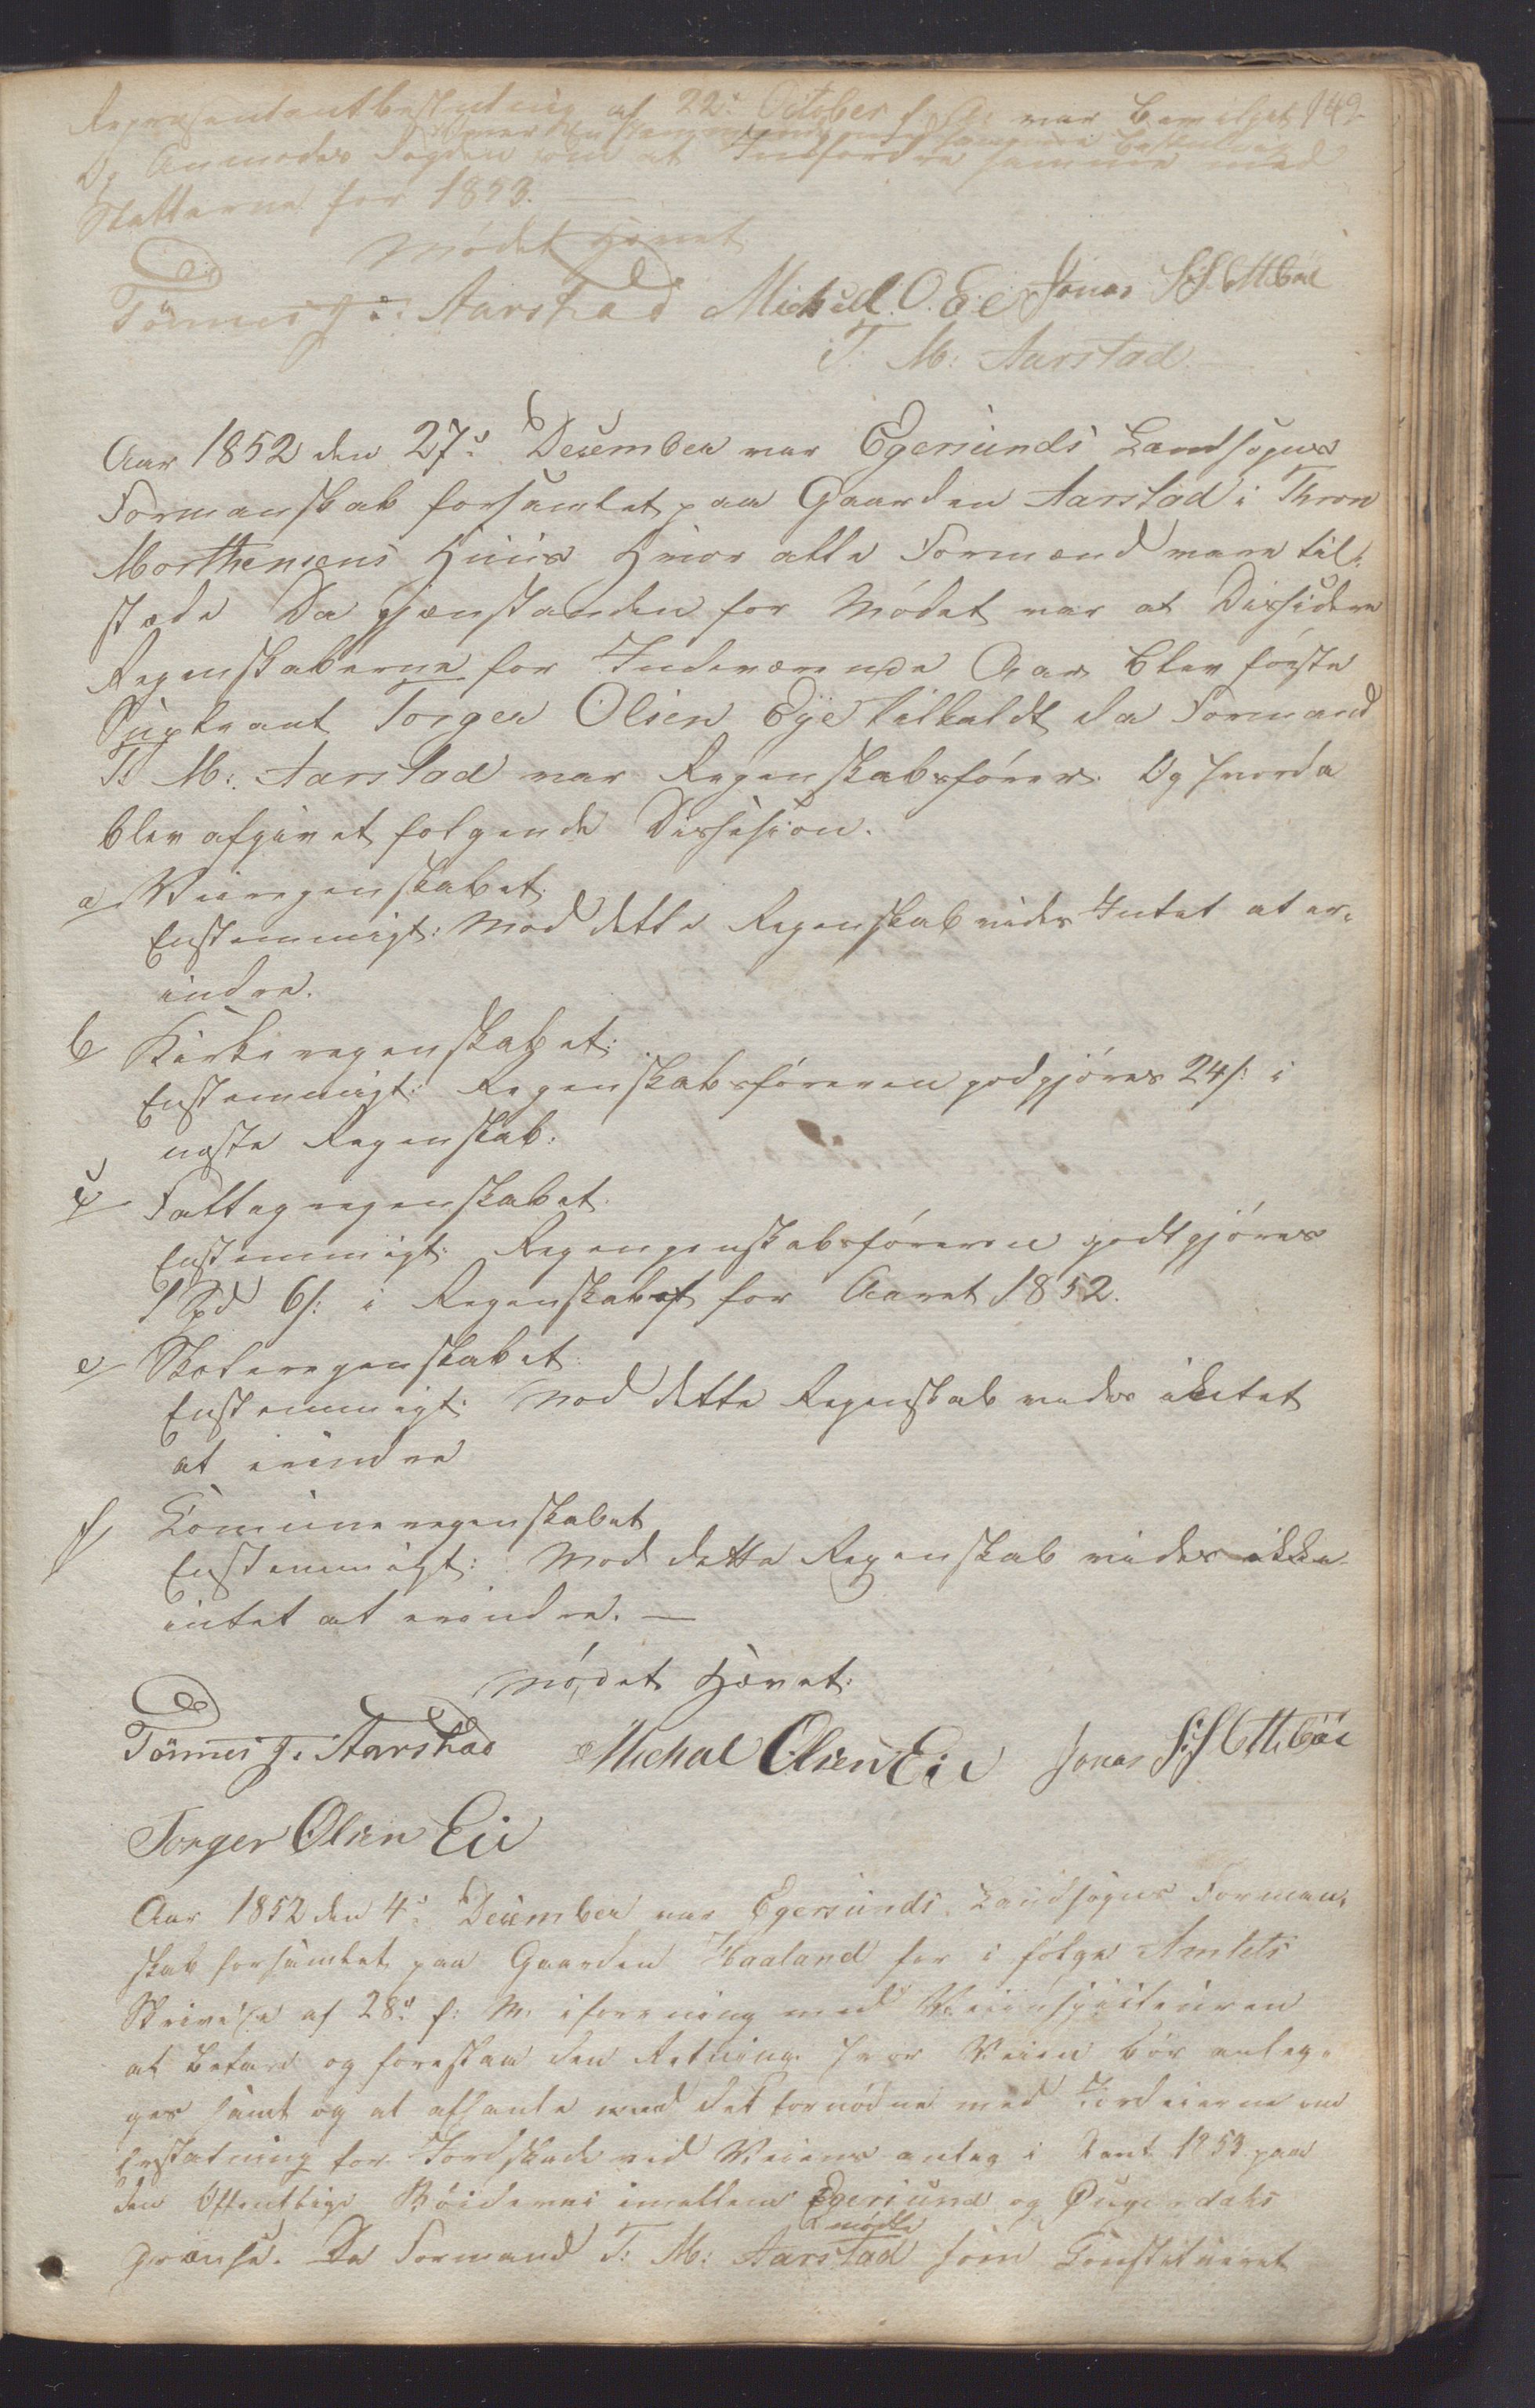 149
Repræsentantbeslutning af 22de October f. A. var bevilget
Og Anmodes Fogden om at Indfordre samme med
Skatterne for 1853. —
Mødet Hævet
Tönnes J. Aarstad Michael O. Eie Jonas S. S. Mtböe
T. M: Aarstad. —
Aar 1852 den 27de Desember var Egersunds Landsogns
Formanskab forsamlet paa Gaarden Aarstad i Thron
Morthensens Huus Hvor alle Formænd vare til-
stæde Da gjenstanden for Mødet var at Dissidere
Regenskaberne for Indeværende Aar blev første
Supleant Torger Olsen Eye tilkaldt da Formand
T. M: Aarstad var Regenskabsfører. Og hvorda
blev afgivet følgende Dissision.
a Veiregenskabet.
Enstemmigt: Mod dette Regenskab vides Intet at er-
indre.
b Kirkeregenskabet:
Enstemmigt: Regenskabsføreren godgjøres 24 s: i
neste Regenskab.
c Fattigregenskabet.
Enstemmigt: Regengenskabsføreren godtgjøres
1 Spd 6 s: i Regenskabet for Aaret 1852.
e Skoleregenskabet:
Enstemmigt: Mod dette Regenskab vides intet
at erindre
f Comuneregenskabet
Enstemmigt: Mod dette Regenskab vides ikke
intet at erindre. —
Mødet Hævet:
Tönnes J. Aarstad Michal Olsen Eie Jonas S. S. Mtböe
Torger Olsen Eie
Aar 1852 den 4de Desember var Egersunds Landsogns Forman-
skab forsamlet paa Gaarden Haaland for i følge Amtets
Skrivelse af 28de f: M. iforening med Veiinspecteuren
at befare og foreslaa den Retning hvor Veien bør anleg-
ges samt og at afhandle med det fornødne med Jordeierne om
Erstatning for Jordskade ved Veiens anleg i Aaret 1853 paa
den Offentlige Bøidevei imellem Egersund og Øugnedals
grænse. Da Formand T: M: Aarstad mødte som Constitueret